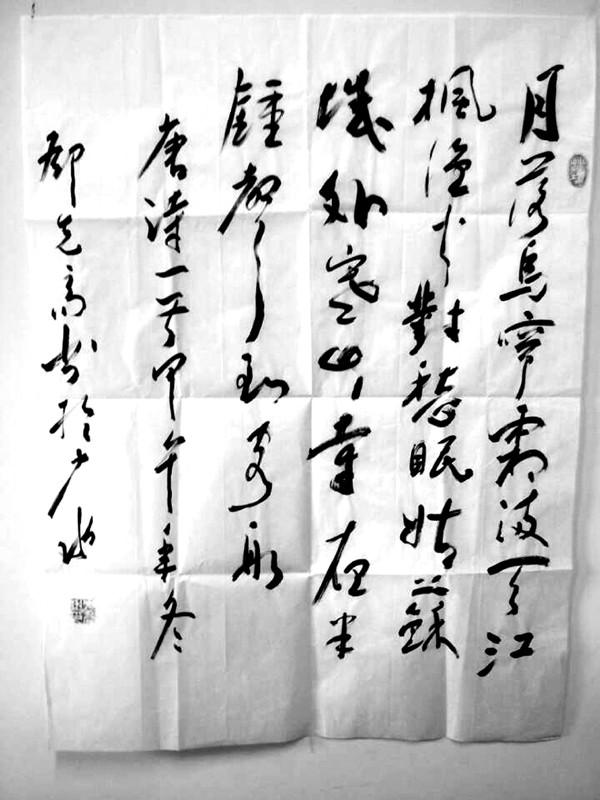 月落烏啼霜滿天江
楓漁火對愁眠姑蘇
城外寒山寺夜半
鍾聲到客船
唐詩一首甲午年冬
先高书於